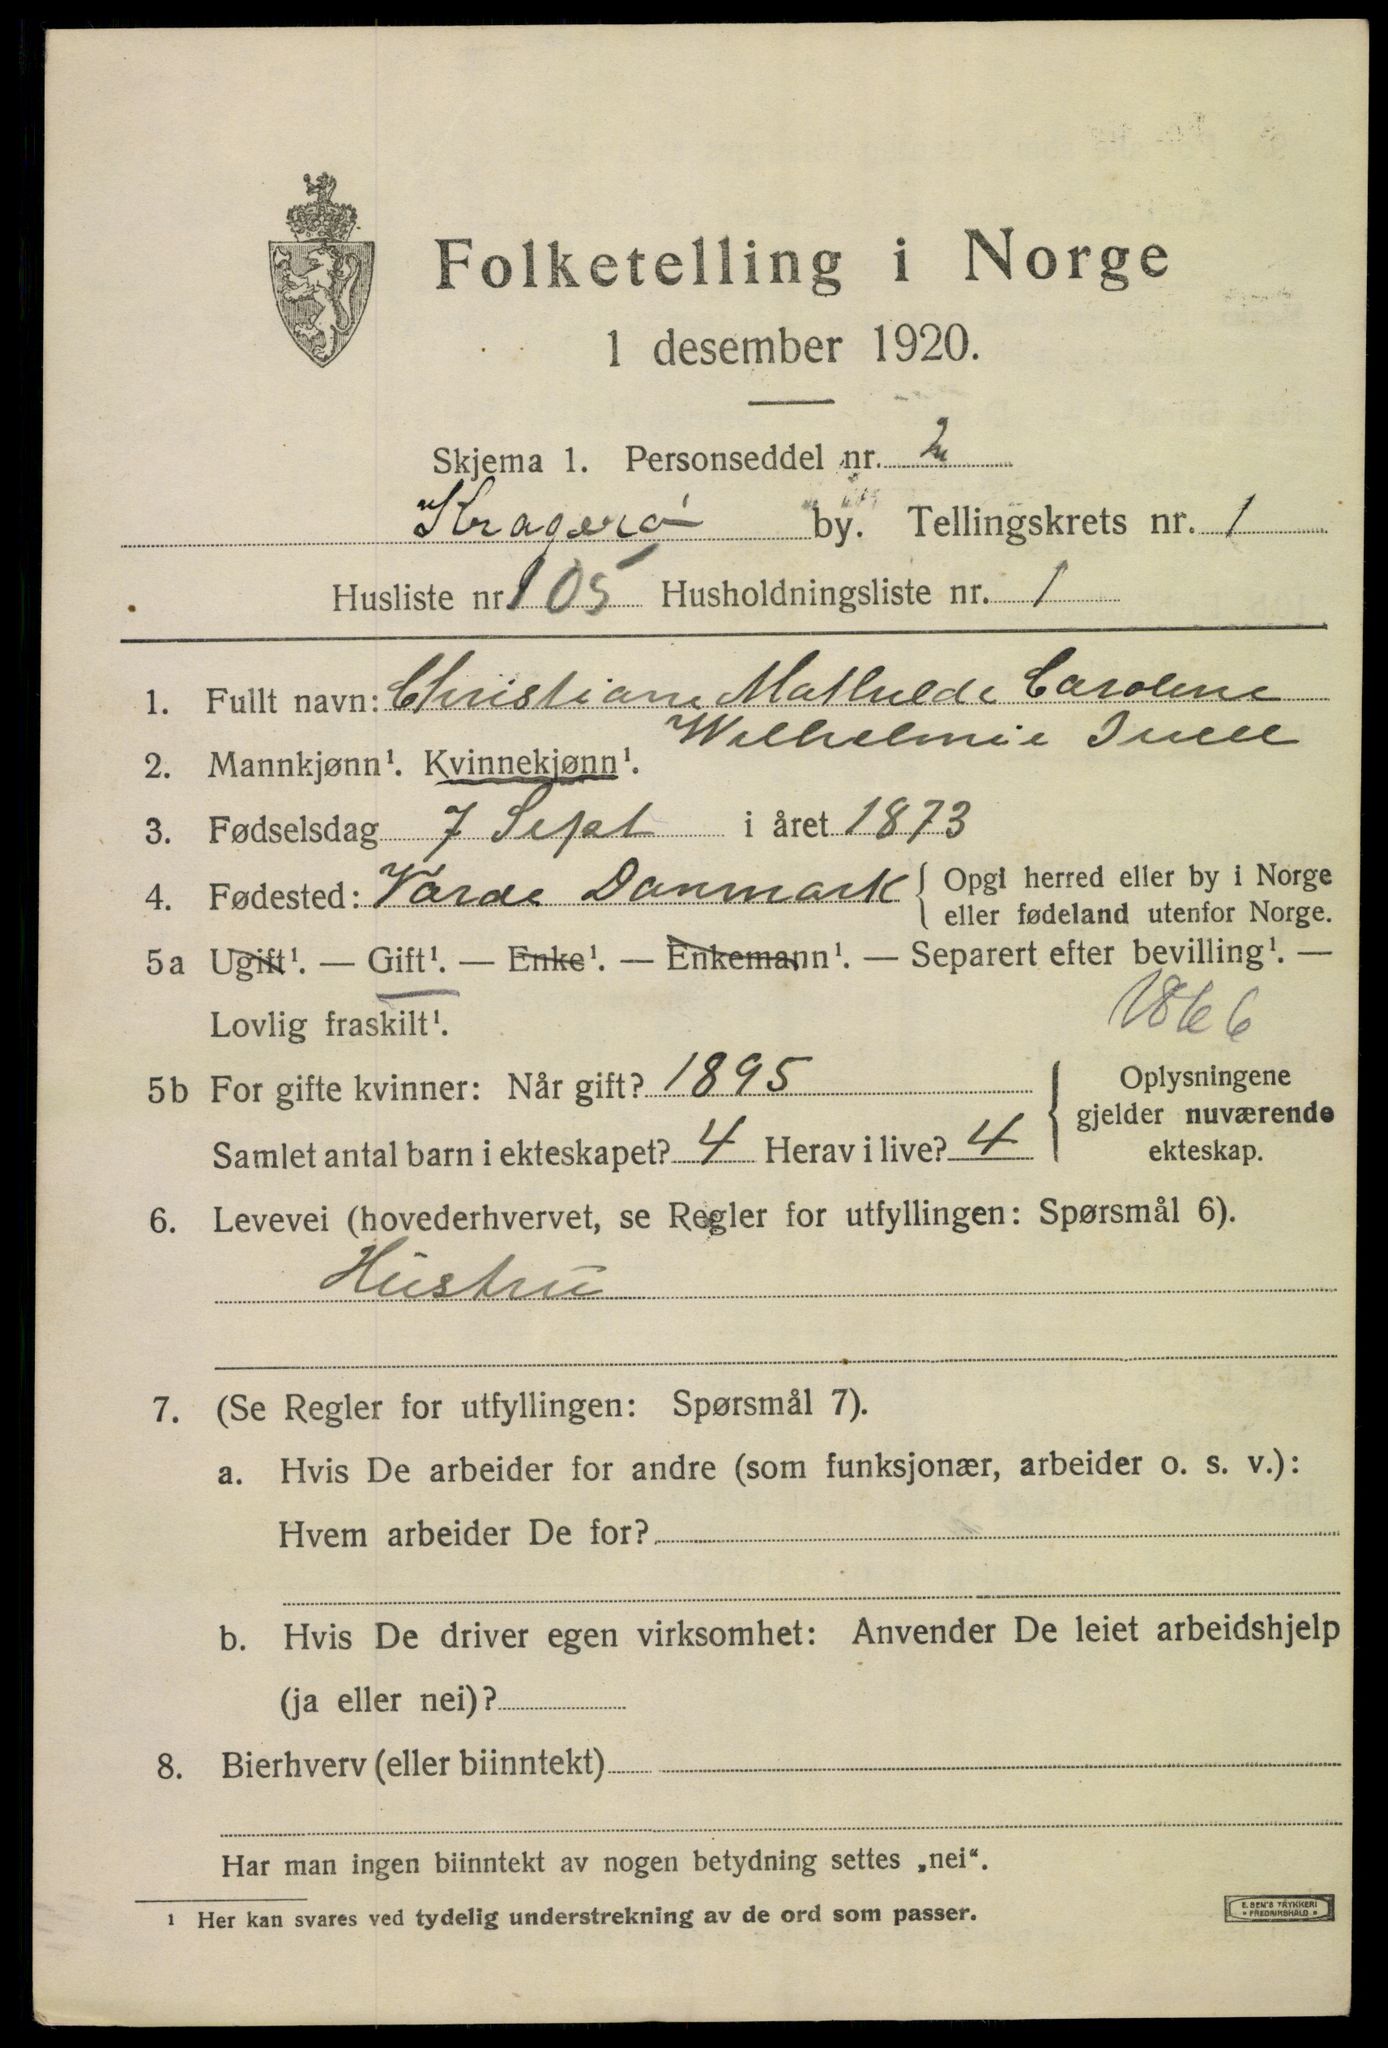 Folketelling i Norge
1 desember 1920.
Skjema 1. Personseddel nr. 2
Kragerø by. Tellingskrets nr. 1
Husliste nr. 105 Husholdningsliste nr. 1
1. Fullt navn: Christiane Mathilde Caroline
Wilhelmie Juell
2. Mannkjønn¹. Kvinnekjønn¹.
3. Fødselsdag 7 Sept i året 1873
4. Fødested: Varde Danmark { Opgi herred eller by i Norge
eller fødeland utenfor Norge.
5a Ugift¹. — Gift¹. — Enke¹. — Enkemann¹. — Separert efter bevilling¹. —
Lovlig fraskilt¹. 1866
5b For gifte kvinner: Når gift? 1895
Samlet antal barn i ekteskapet? 4 Herav i live? 4
Oplysningene
gjelder nuværende
ekteskap.
6. Levevei (hovederhvervet, se Regler for utfyllingen: Spørsmål 6).
Hustru
7. (Se Regler for utfyllingen: Spørsmål 7).
a. Hvis De arbeider for andre (som funksjonær, arbeider o. s. v.):
Hvem arbeider De for?
b. Hvis De driver egen virksomhet: Anvender De leiet arbeidshjelp
(ja eller nei)?
8. Bierhverv (eller biinntekt)
Har man ingen biinntekt av nogen betydning settes „nei“.
¹ Her kan svares ved tydelig understrekning av de ord som passer.
E. SEM'S TRYKKERI
• FREDRIKSHALD •